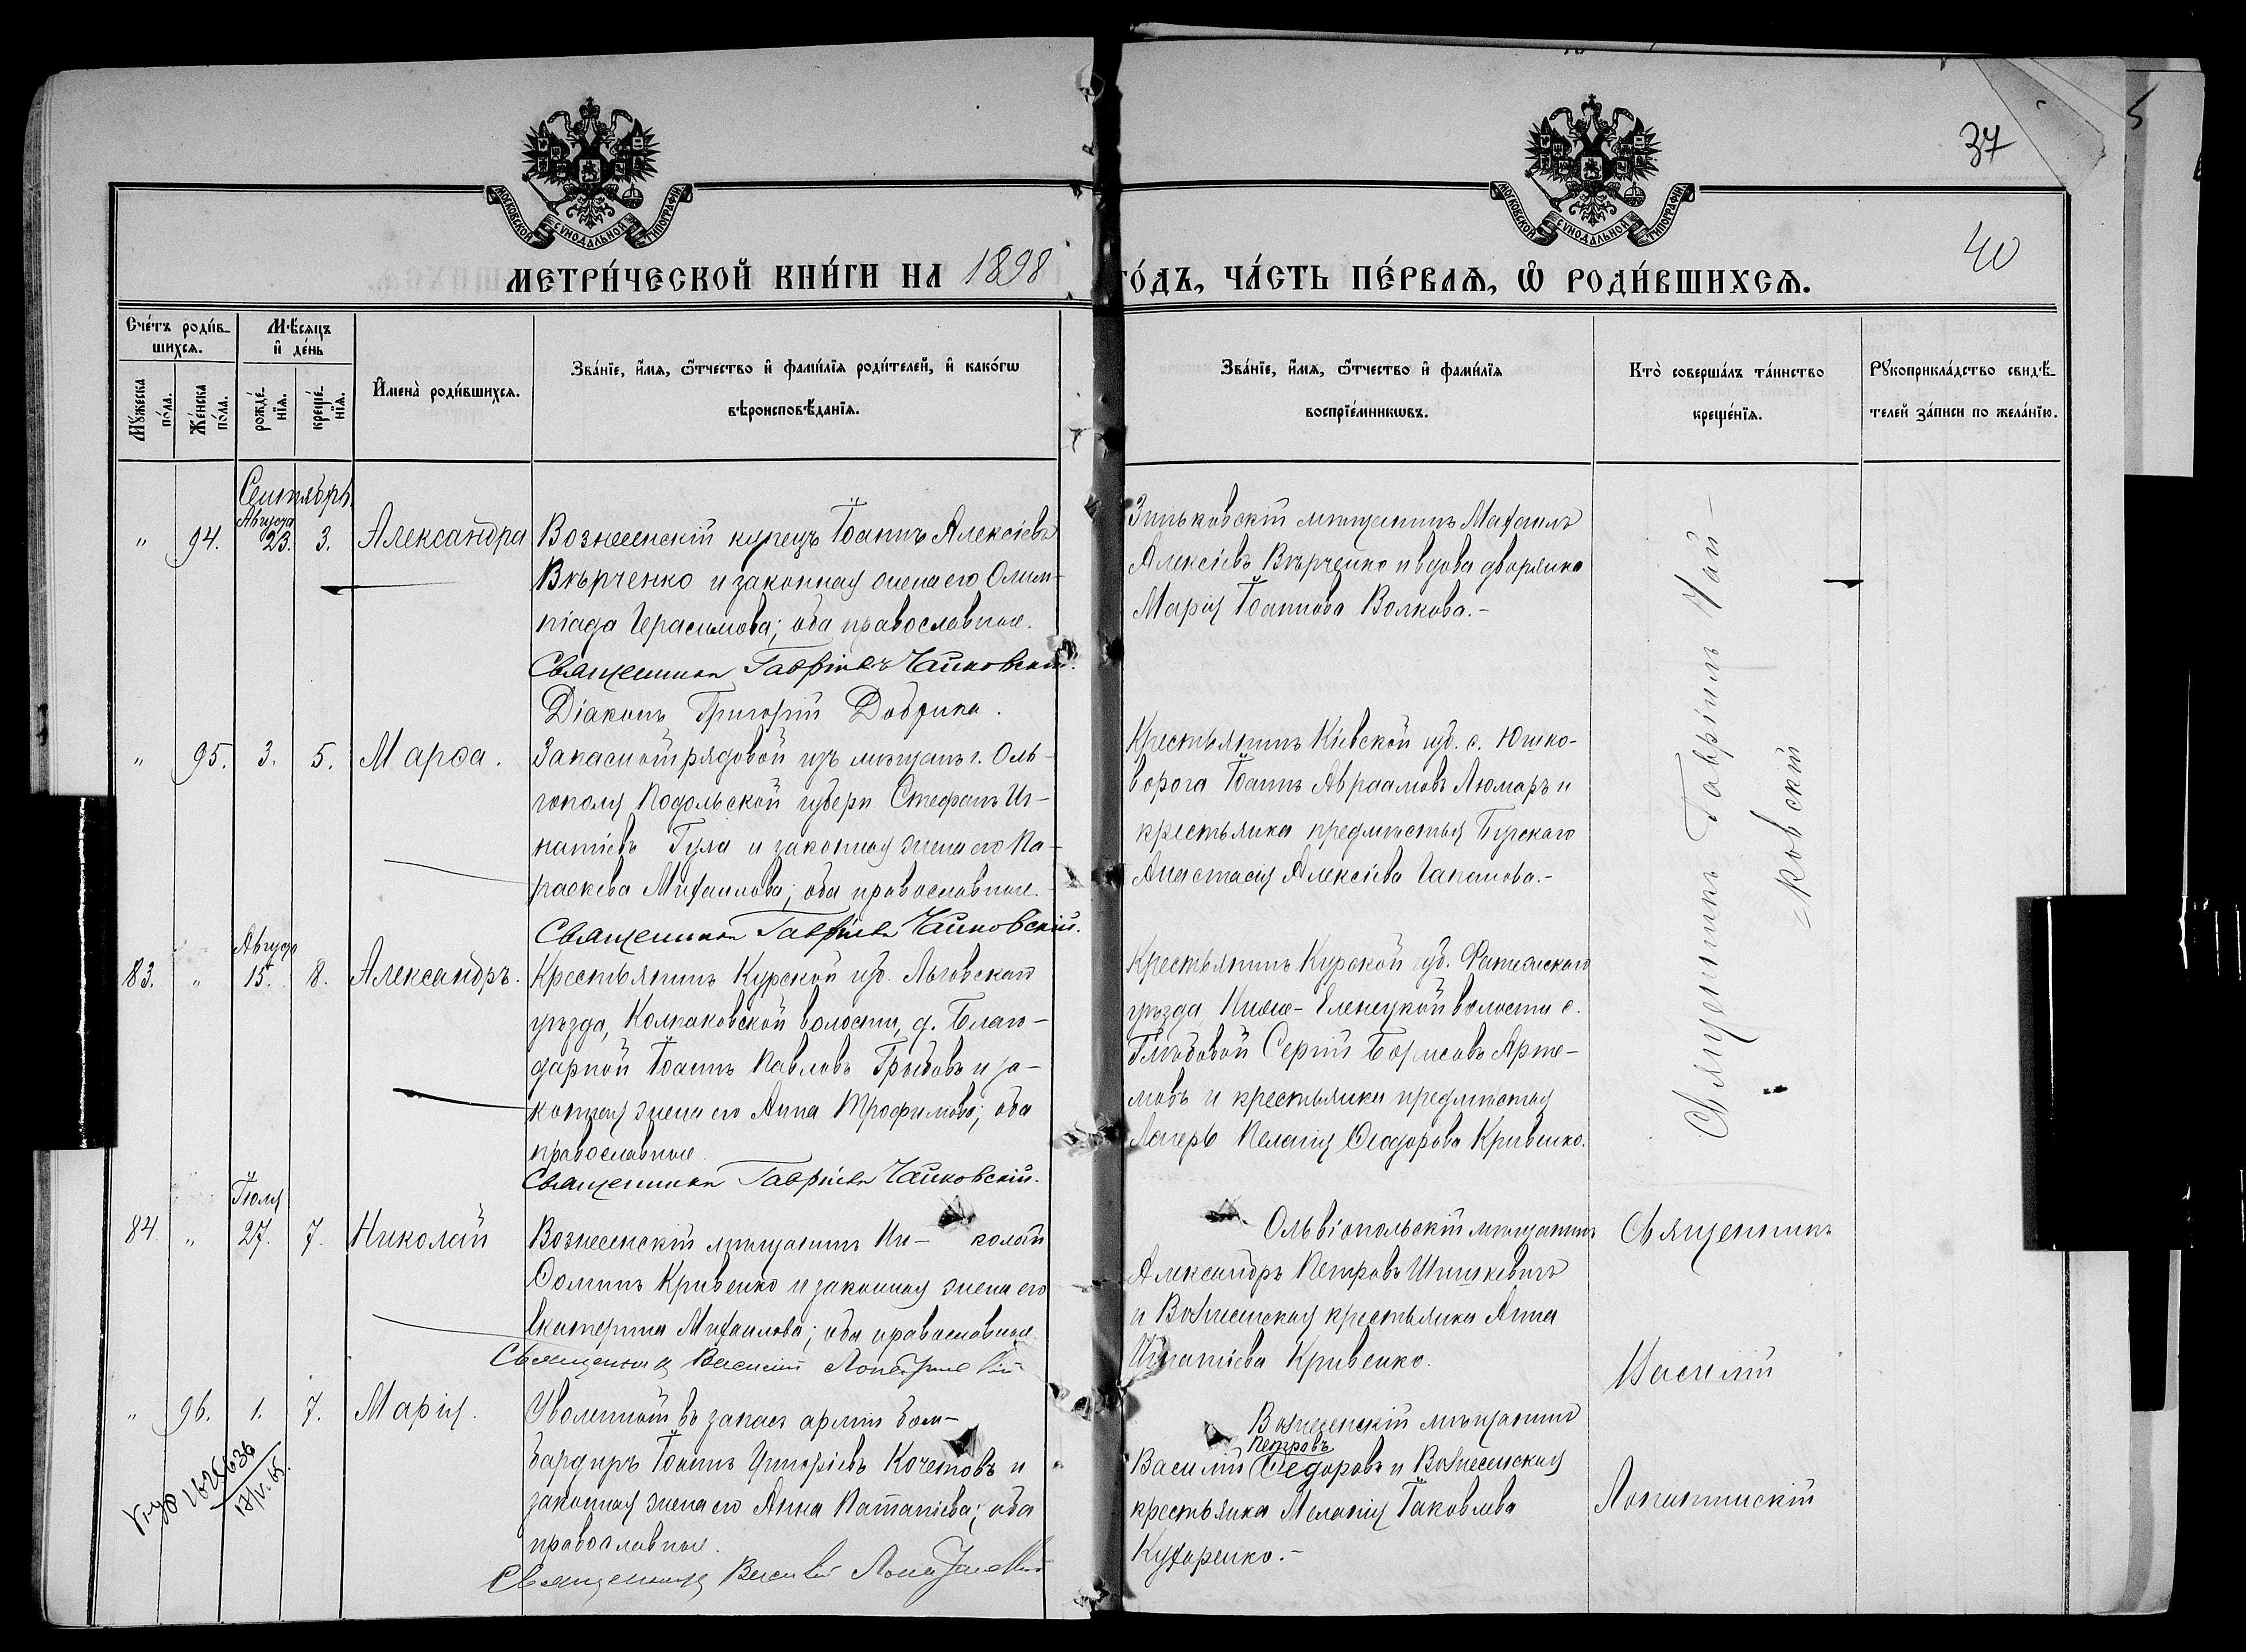 37
40
МОСКОВСКОЙ СУНОДАЛЬНОЙ ТИПОГРАФІИ
МОСКОВСКОЙ СУНОДАЛЬНОЙ ТИПОГРАФІИ
МЕТРИ́ЧЕСКОЙ КНИ́ГИ НА 1898
ГО́ДЪ, ЧА́СТЬ ПЕ́РВАѦ, Ѽ РОДИ́ВШИХСѦ.
Сче́тъ роди́в-
шихся.
Мѣ́сяцъ
и҆ де́нь
Мꙋ́жеска по́ла.
Же́нска по́ла.
рожде́нїя.
креще́нїя.
И҆мена̀ роди́вшихся.
Зва́нїе, и҆́мя, ѻ҆́тчество и҆ фами́лїя роди́телей, и҆ како́гѡ
вѣроисповѣ́данїя.
Зва́нїе, и҆́мя, ѻ҆́тчество и҆ фами́лїя
воспрїе́мникѡвъ.
Кто̀ соверша́лъ та́инство
креще́нїя.
Рꙋкоприкла́дство свидѣ́-
телей за́писи по жела́нїю.
Сентябрь.
Августа
" 94. 23. 3. Александра
Вознесенскій купецъ Іоаннъ Алексіевъ
Вѣрченко и законная жена его Олим-
піада Герасимова; оба православные.
Священникъ Гавріилъ Чайковскій.
Діаконъ Григорій
Зиньковскій мѣщанинъ Михаилъ
Алексіевъ Вѣрченко и вдова дворянка
Марія Іоаннова Волкова.-
Священникъ Гавріилъ Чай-
=ковскій
" 95. 3. 5. Марѳа.
Запасной рядовой изъ мѣщанъ г. Оль-
гополя Подольской губерн Стефанъ Иг-
натіевъ Гула и законная жена его Па-
раскева Михаилова; оба православные.
Священникъ Гавріилъ Чайковскій.
Крестьянинъ Кіевской губ. с. Юшко-
ворога Іоаннъ Авраамовъ и
крестьянка предмѣстья Бугскаго
Анастасія Алексіева
Августа
83. " 15. 8. Александръ.
Крестьянинъ Курской губ. Льговскаго
уѣзда, Колпаковской волости, д. Благо-
дарной Іоаннъ Павловъ Грибовъ и за-
конная жена его Анна Трофимова; оба
православные.
Священникъ Гавріилъ Чайковскій.
Крестьянинъ Курской губ. Фатежскаго
уѣзда Нижне- волости с.
Глѣбовой Сергій Борисовъ Арте-
мовъ и крестьянка предмѣстья
Лагерь Пелагія Ѳеодорова Кривенко.
Іюля
84. " 27. 7. Николай
Вознесенскій мѣщанинъ Ни- колай
Ѳоминъ Кривенко и законная жена его
Екатерина Михаилова; оба православные.
Священникъ Василій
Ольвіопольскій мѣщанинъ
Александръ Петровъ Шишкевичъ
и Вознесенская крестьянка Анна
Игнатіева Кривенко.
Священникъ
Василій
" 96. 1. 7. Марія.
Уволенный въ запасъ арміи бом-
бардиръ Іоаннъ Григоріевъ Кочетовъ и
законная жена его Анна Патапіева; оба
православные.
Священникъ Василій
Вознесенскій мѣщанинъ
Петровъ
Василій Ѳедоровъ и Вознесенская
крестьянка Меланія Іаковлева
Кухаренко.-
17/V.65.